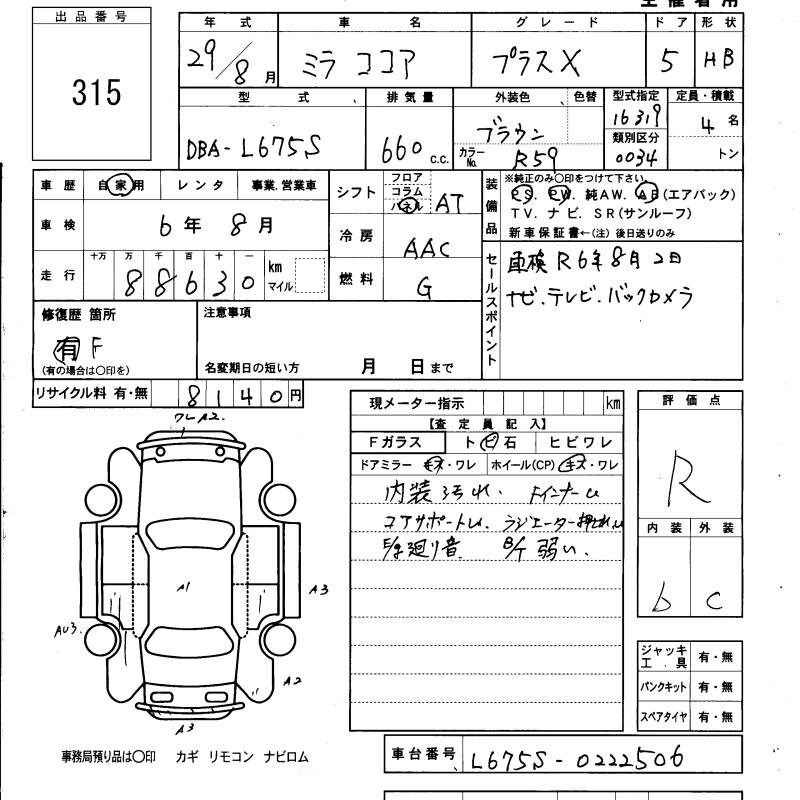 出品番号
315
年式 車名 グレード ドア 形状
29/8月 ミラ ココア プラスX 5 HB
型式 排気量 外装色 色替 型式指定 定員・積載
DBA-L675S 660 c.c. ブラウン 16319 4名
カラーNo. R59 類別区分 0034 トン
車歴 自家用 レンタ 事業.営業車
車検 6年 8月
走行 十万 万 千 百 十 一
88630 km マイル
シフト フロア コラム パネル AT
冷房 AAC
燃料 G
装備品 ※純正のみ○印をつけて下さい。
PS. PW. 純AW. AB(エアバック)
TV. ナビ. SR(サンルーフ)
新車保証書←(注) 後日送りのみ
セールスポイント
車検 R6年8月2日
ナビ.テレビ.バックカメラ
修復歴 箇所
有 F
(有の場合は○印を)
注意事項
名変期日の短い方 月 日まで
リサイクル料 有・無 8140円
現メーター指示 km
【査定員記入】
Fガラス ト ビ 石 ヒビワレ
ドアミラー キズ・ワレ ホイール(CP) キズ・ワレ
内装 汚れ. Fインナーu
コアサポートu. ラジエーター押され
E/g廻り音 B/T 弱い.
評価点
R
内装 外装
b c
ワレA2.
A1
A3
AU3.
A2
A3
ジャッキ工具 有・無
パンクキット 有・無
スペアタイヤ 有・無
事務局預り品は○印 カギ リモコン ナビロム
車台番号 L675S-0222506